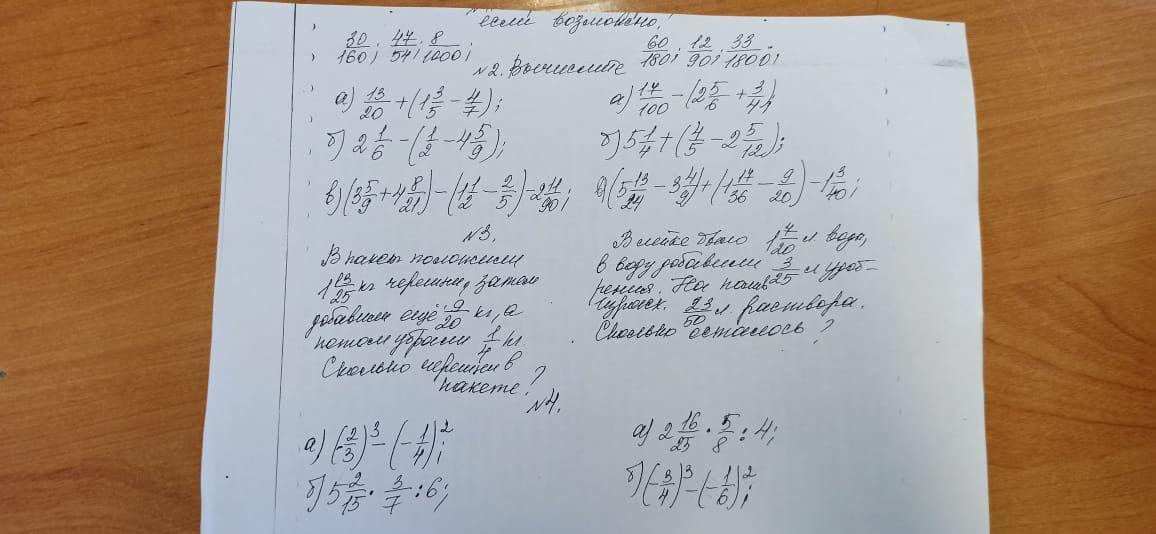 если возможно!
30/160; 47/54; 8/1000;
60/180; 12/90; 33/1800;
№2. Вычислите
а) 13/20 + (1 3/5 − 4/7);
б) 2 1/6 − (1/2 − 4 5/9);
в) (3 5/9 + 4 8/21) − (1 1/2 − 2/5) − 2 11/90;
а) 17/100 − (2 5/6 + 3/4);
б) 5 1/4 + (4/5 − 2 5/12);
в) (5 13/24 − 3 4/9) + (1 17/36 − 9/20) − 1 3/40;
№3.
В пакет положили
1 13/25 кг черешни, затем
добавили ещё 9/20 кг, а
потом убрали 1/4 кг.
Сколько черешни в
пакете?
В лейке было 1 7/20 л воды,
в воду добавили 3/25 л удоб-
рения. На полив
израсх. 23/50 л. раствора.
Сколько осталось?
№4.
а) (−2/3)³ − (−1/4)²;
б) 5 2/15 · 3/7 : 6;
а) 2 16/25 · 5/8 : 4;
б) (−3/4)³ − (−1/6)²;